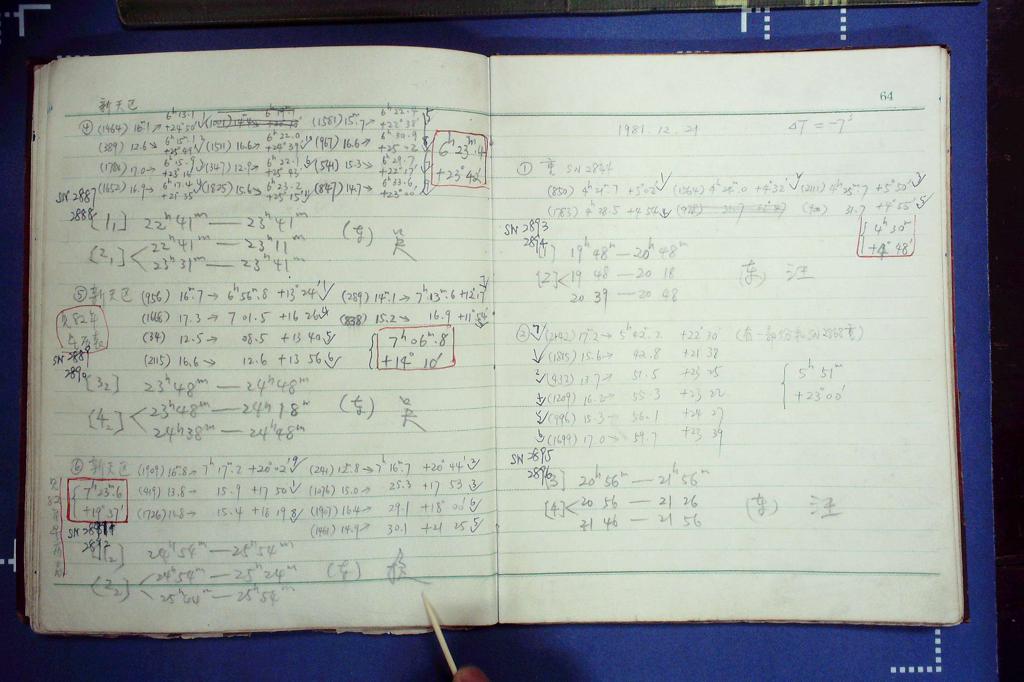 新天区
④ (1464) 16ᵐ.1 → 6ʰ13.1 +24°50′ (1581) 15ᵐ.7 → 6ʰ22.4 +23°38′
(389) 12.6 → 6ʰ15.1 +25°44′ (1511) 16.6 → 6ʰ22.0 +24°39′ (967) 16.6 → 6ʰ30.9
(1786) 17.0 → 6ʰ15.9 +23°14′ (347) 12.9 → 6ʰ22.1 +25°43′ (541) 15.3 → 6ʰ29.7 +22°17′
(1652) 16.9 → 6ʰ17.4 +21°35′ (1825) 15.6 → 6ʰ23.2 +25°15′ (847) 14.7 → 6ʰ33.6 +23°20′
6ʰ23ᵐ.4
+23°42′
SN 2887
2888
[1₁] 22ʰ41ᵐ — 23ʰ41ᵐ
[2₁] 22ʰ41ᵐ — 23ʰ11ᵐ
23ʰ31ᵐ — 23ʰ41ᵐ
⑤ 新天区 (956) 16ᵐ.7 → 6ʰ56ᵐ.8 +13°24′ (289) 14ᵐ.1 → 7ʰ13ᵐ.6 +12°17′
(1668) 17.3 → 7 01.5 +16 26 (838) 15.2 → 16.9 +11°54′
(34) 12.5 → 08.5 +13 40.5
(2115) 16.6 → 12.6 +13 56.6
7ʰ06ᵐ.8
+14°10′
见82年
SN 2889
2890
[3₂] 23ʰ48ᵐ — 24ʰ48ᵐ
[4₂] 23ʰ48ᵐ — 24ʰ18ᵐ
24ʰ38ᵐ — 24ʰ48ᵐ
⑥ 新天区 (1909) 16ᵐ.8 → 7ʰ17ᵐ.2 +20°02′ (241) 15ᵐ.8 → 7ʰ16ᵐ.7 +20°44′
(419) 13.8 → 15.9 +17 50 (1076) 15.0 → 25.3 +17 53
15.4 +18 19 (1907) 16.4 → 29.1 +18°00′
(1461) 14.9 → 30.1 +21 25
7ʰ23ᵐ.6
+19°37′
2892
24ʰ54ᵐ — 25ʰ54ᵐ
[2₂] 24ʰ54ᵐ — 25ʰ24ᵐ
25ʰ44ᵐ — 25ʰ54ᵐ
64
1981.12.21 ΔT = -7ˢ
① SN 2844
(850) 4ʰ21ᵐ.7 +5°02′ (1264) 4ʰ24ᵐ.0 +4°32′ (2111) 4ʰ25ᵐ.7 +5°50′
(1783) 4ʰ28.5 +4 54 31.7 +4°55′
4ʰ30ᵐ
+4°48′
SN 2893
2894
[1] 19ʰ48ᵐ — 20ʰ48ᵐ
[2] 19 48 — 20 18
20 39 — 20 48
(东) 汪
② (2142) 17ᵐ.2 → 5ʰ02ᵐ.2 +22°30′ (有一部份和SN 2868重)
(1815) 15.6 → 42.8 +21 38
(432) 13.7 → 51.5 +23 25
(1209) 16.2 → 55.3 +23 22
(996) 15.3 → 56.1 +24 27
(1699) 17.0 → 59.7 +23 39
5ʰ51ᵐ
+23°00′
SN 2895
2896
[3] 20ʰ56ᵐ — 21ʰ56ᵐ
[4] 20 56 — 21 26
21 46 — 21 56
(东) 汪